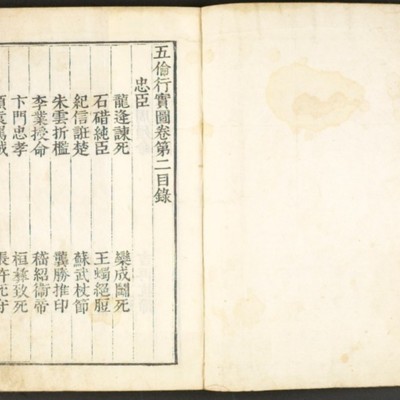 五倫行實圖卷第二目錄
忠臣
龍逢諫死 欒成鬪死
石碏純臣 王蠋絕脰
紀信誑楚 蘇武杖節
朱雲折檻 龔勝推印
李業授命 嵇紹衛帝
卞門忠孝 桓彝致死